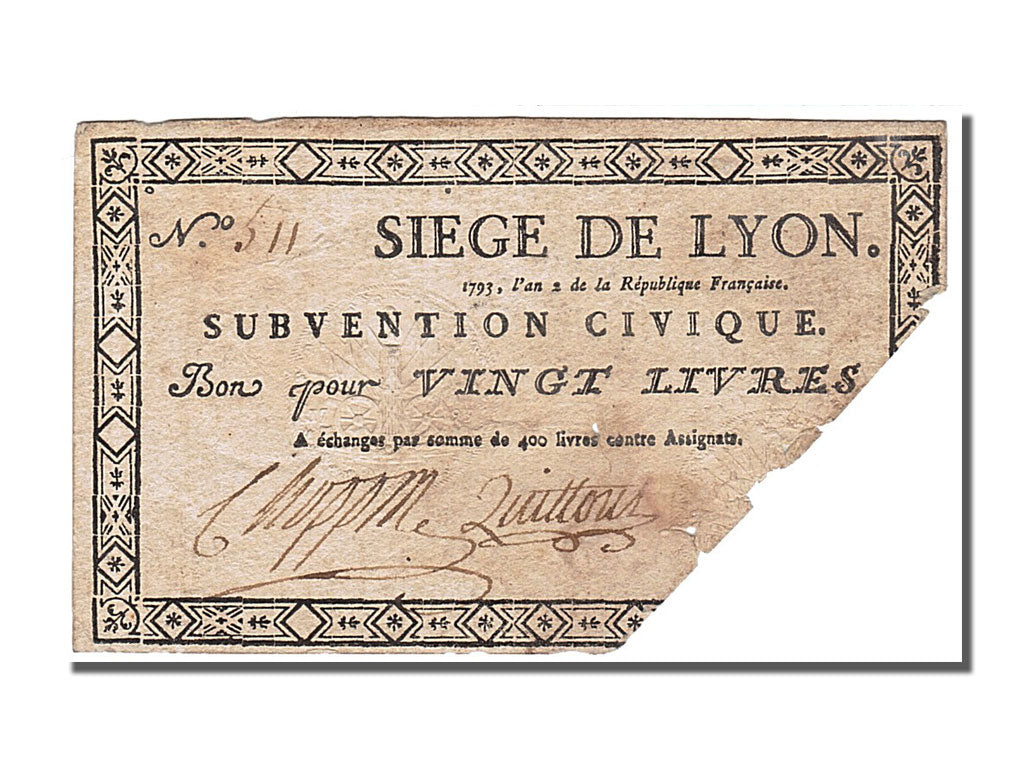 N.º 511
SIEGE DE LYON.
1793, l'an 2 de la République Française.
SUBVENTION CIVIQUE.
Bon pour VINGT LIVRES
A échanger par somme de 400 livres contre Assignats.